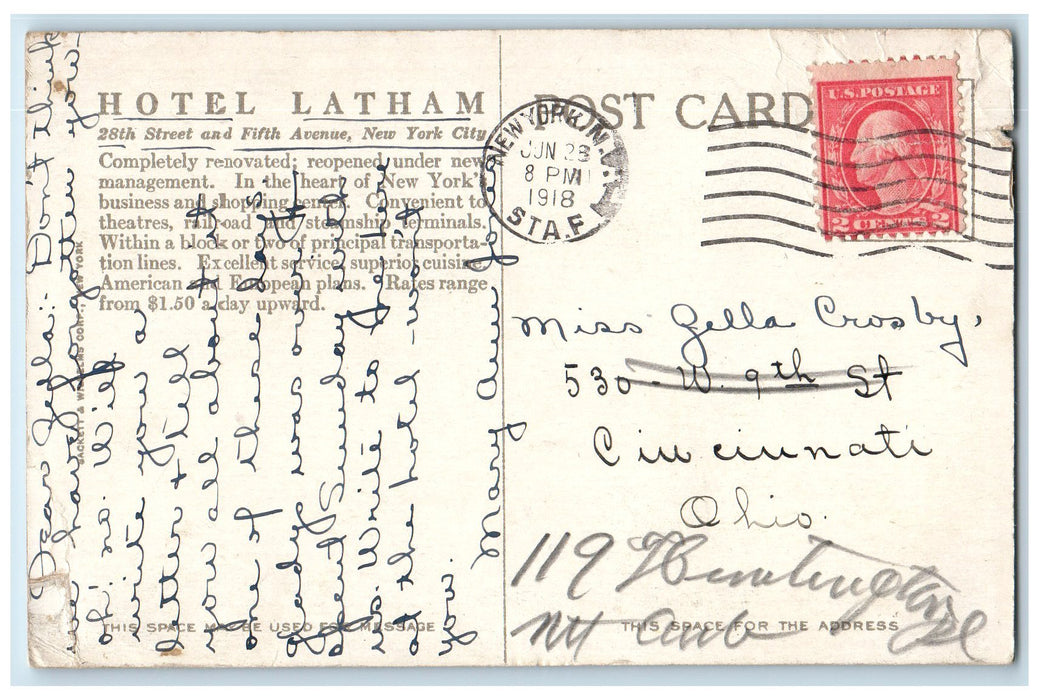 HOTEL LATHAM
28th Street and Fifth Avenue, New York City
Completely renovated; reopened under new
management. In the heart of New York's
business and shopping center. Convenient to
theatres, railroad and steamship terminals.
Within a block or two of principal transporta-
tion lines. Excellent service, superior cuisine.
American and European plans. Rates range
from $1.50 a day upward.
SACKETT & WILHELMS CORP., NEW YORK
THIS SPACE MAY BE USED FOR MESSAGE
Dear Zella: Don't think
we haven't long you
oh! no. Will
write you a
letter & tell
you all about it
one of these days.
Gladys was over &
spent Sunday with
us. Write to me here
at the hotel - won't
you. Mary Ann Jones
POST CARD
NEW YORK, N.Y.
JUN 28
8 PM
1918
STA. F
U.S. POSTAGE
2 CENTS 2
Miss Zella Crosby,
530 - W. 9th St
Cincinnati
Ohio.
119 Huntington Pl
Mt Aub
THIS SPACE FOR THE ADDRESS